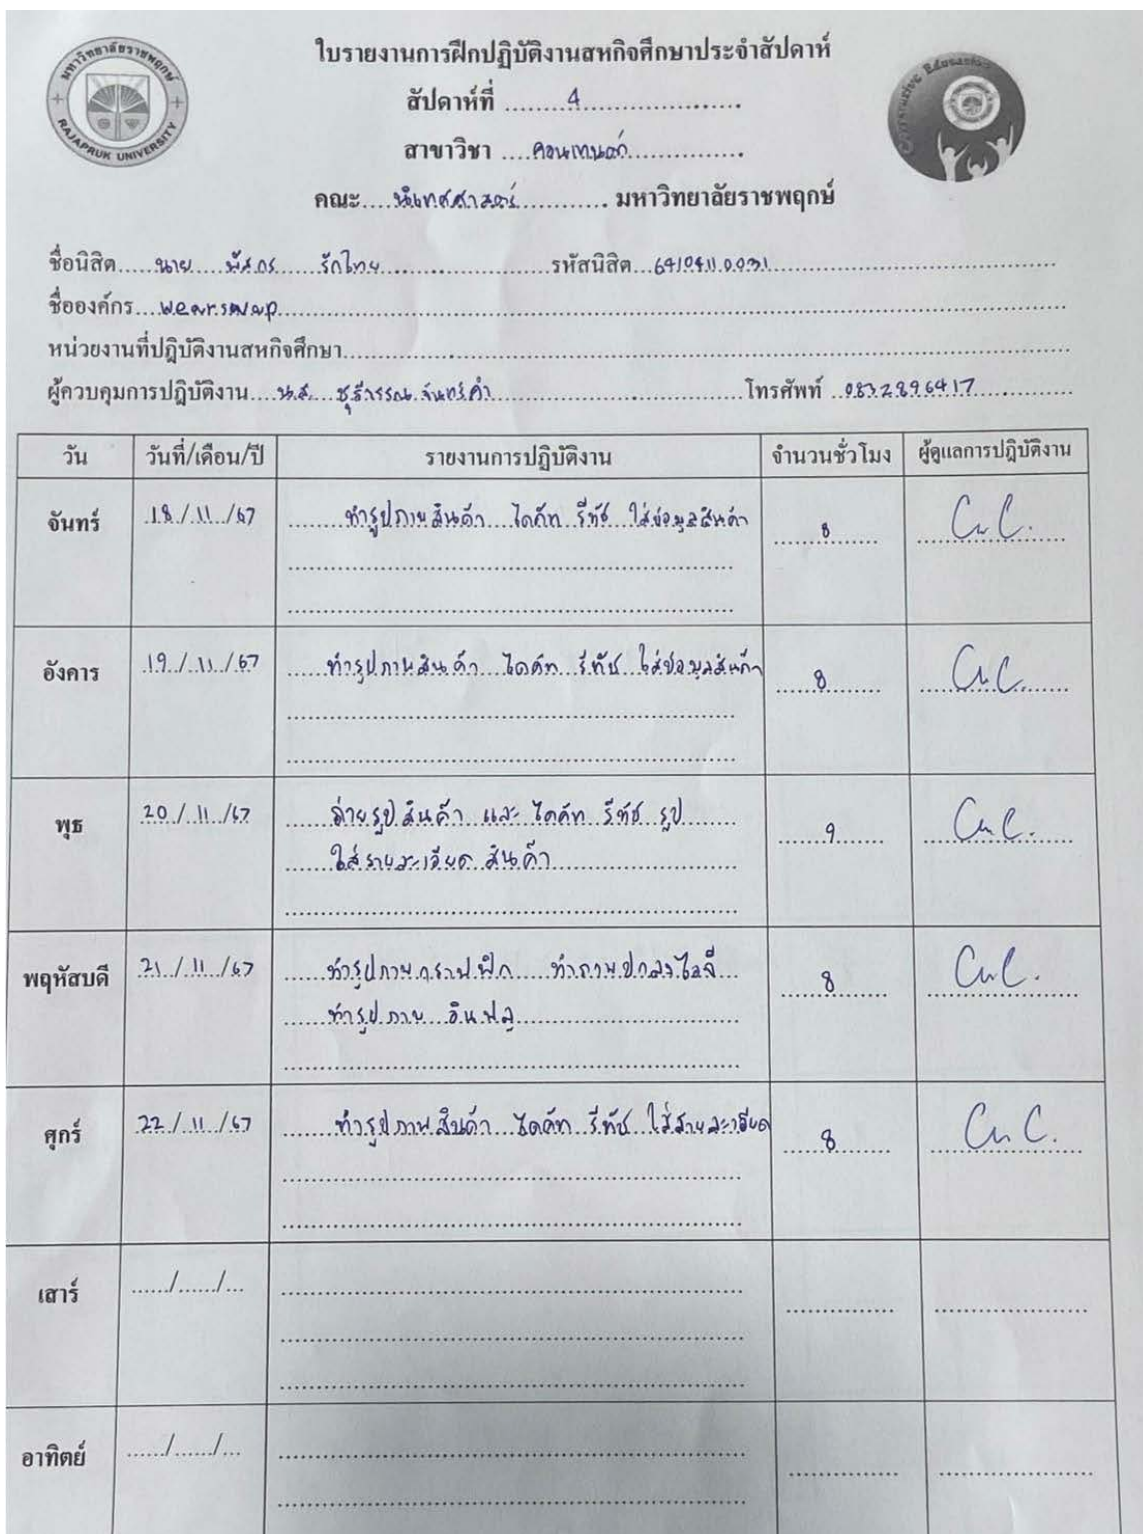 มหาวิทยาลัยราชพฤกษ์
RAJAPRUK UNIVERSITY
ใบรายงานการฝึกปฏิบัติงานสหกิจศึกษาประจำสัปดาห์
สัปดาห์ที่ ........4....................
สาขาวิชา ....คอนเทนต์................
คณะ....นิเทศศาสตร์............ มหาวิทยาลัยราชพฤกษ์
ชื่อนิสิต.....นาย.....พัสกร.....รักไทย....................รหัสนิสิต...64104110031...............
ชื่อองค์กร....wear.swap...............
หน่วยงานที่ปฏิบัติงานสหกิจศึกษา...............
ผู้ควบคุมการปฏิบัติงาน....น.ส.................โทรศัพท์ ..0832896417.............
วัน วันที่/เดือน/ปี รายงานการปฏิบัติงาน จำนวนชั่วโมง ผู้ดูแลการปฏิบัติงาน
จันทร์ 18/11/67 ทำรูปภาพสินค้า ไดคัท รีทัช ใส่ข้อมูลสินค้า 8 CnC.
อังคาร 19/11/67 ทำรูปภาพสินค้า ไดคัท รีทัช ใส่ข้อมูลสินค้า 8 CnC.
พุธ 20/11/67 ถ่ายรูปสินค้า และ ไดคัท รีทัช รูป 9 CnC.
ใส่รายละเอียด สินค้า
พฤหัสบดี 21/11/67 ทำรูปภาพกราฟฟิก ทำภาพปก 8 CnC.
ทำรูปภาพ อินฟลู
ศุกร์ 22/11/67 ทำรูปภาพสินค้า ไดคัท รีทัช ใส่รายละเอียด 8 CnC.
เสาร์ ....../....../...
อาทิตย์ ....../....../...